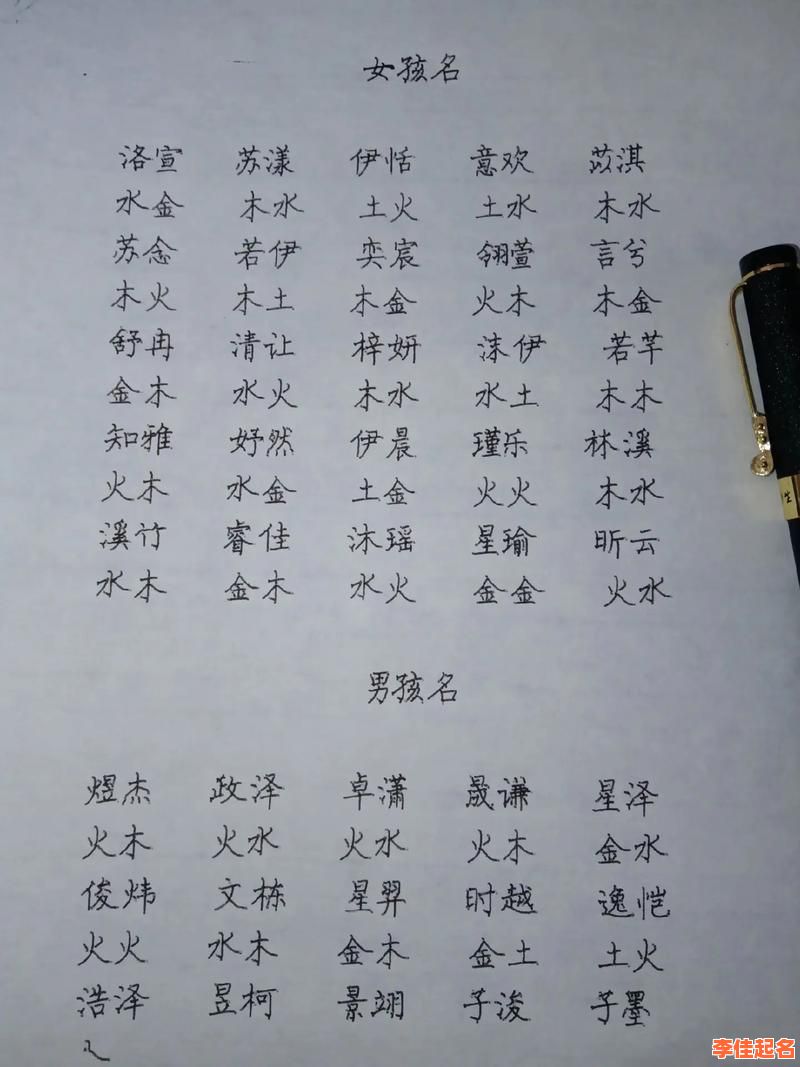 女孩名
洛宣 苏漾 伊恬 意欢 苡淇
水金 木水 土火 土水 木水
苏念 若伊 奕宸 翎萱 言兮
木火 木土 木金 火木 木金
舒冉 清让 梓妍 沫伊 若芊
金木 水火 木水 水土 木木
知雅 妤然 伊晨 瑾乐 林溪
火木 水金 土金 火火 木水
溪竹 睿佳 沐瑶 星瑜 昕云
水木 金木 水火 金金 火水
男孩名
煜杰 政泽 卓潇 晟谦 星泽
火木 火水 火水 火木 金水
俊炜 文栋 星羿 时越 逸恺
火火 水木 金木 金土 土火
浩泽 昱柯 景翊 予浚 予墨
李佳起名